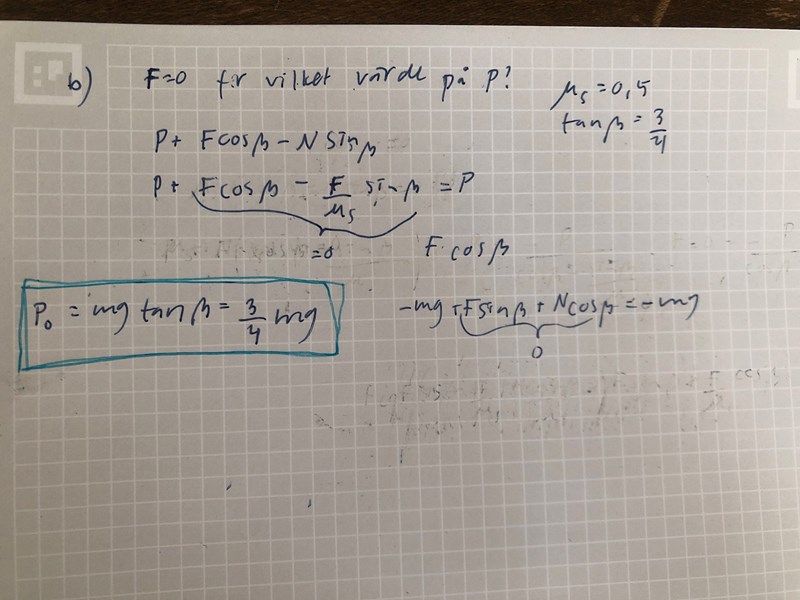 b) F=0 för vilket värde på P?
μs = 0,5
tanβ = 3/4
P + Fcosβ - N sinβ =
P + Fcosβ - F/μs sinβ = P
=0
F·cosβ
P₀ = mg tanβ = 3/4 mg
-mg + Fsinβ + Ncosβ = -mg
0